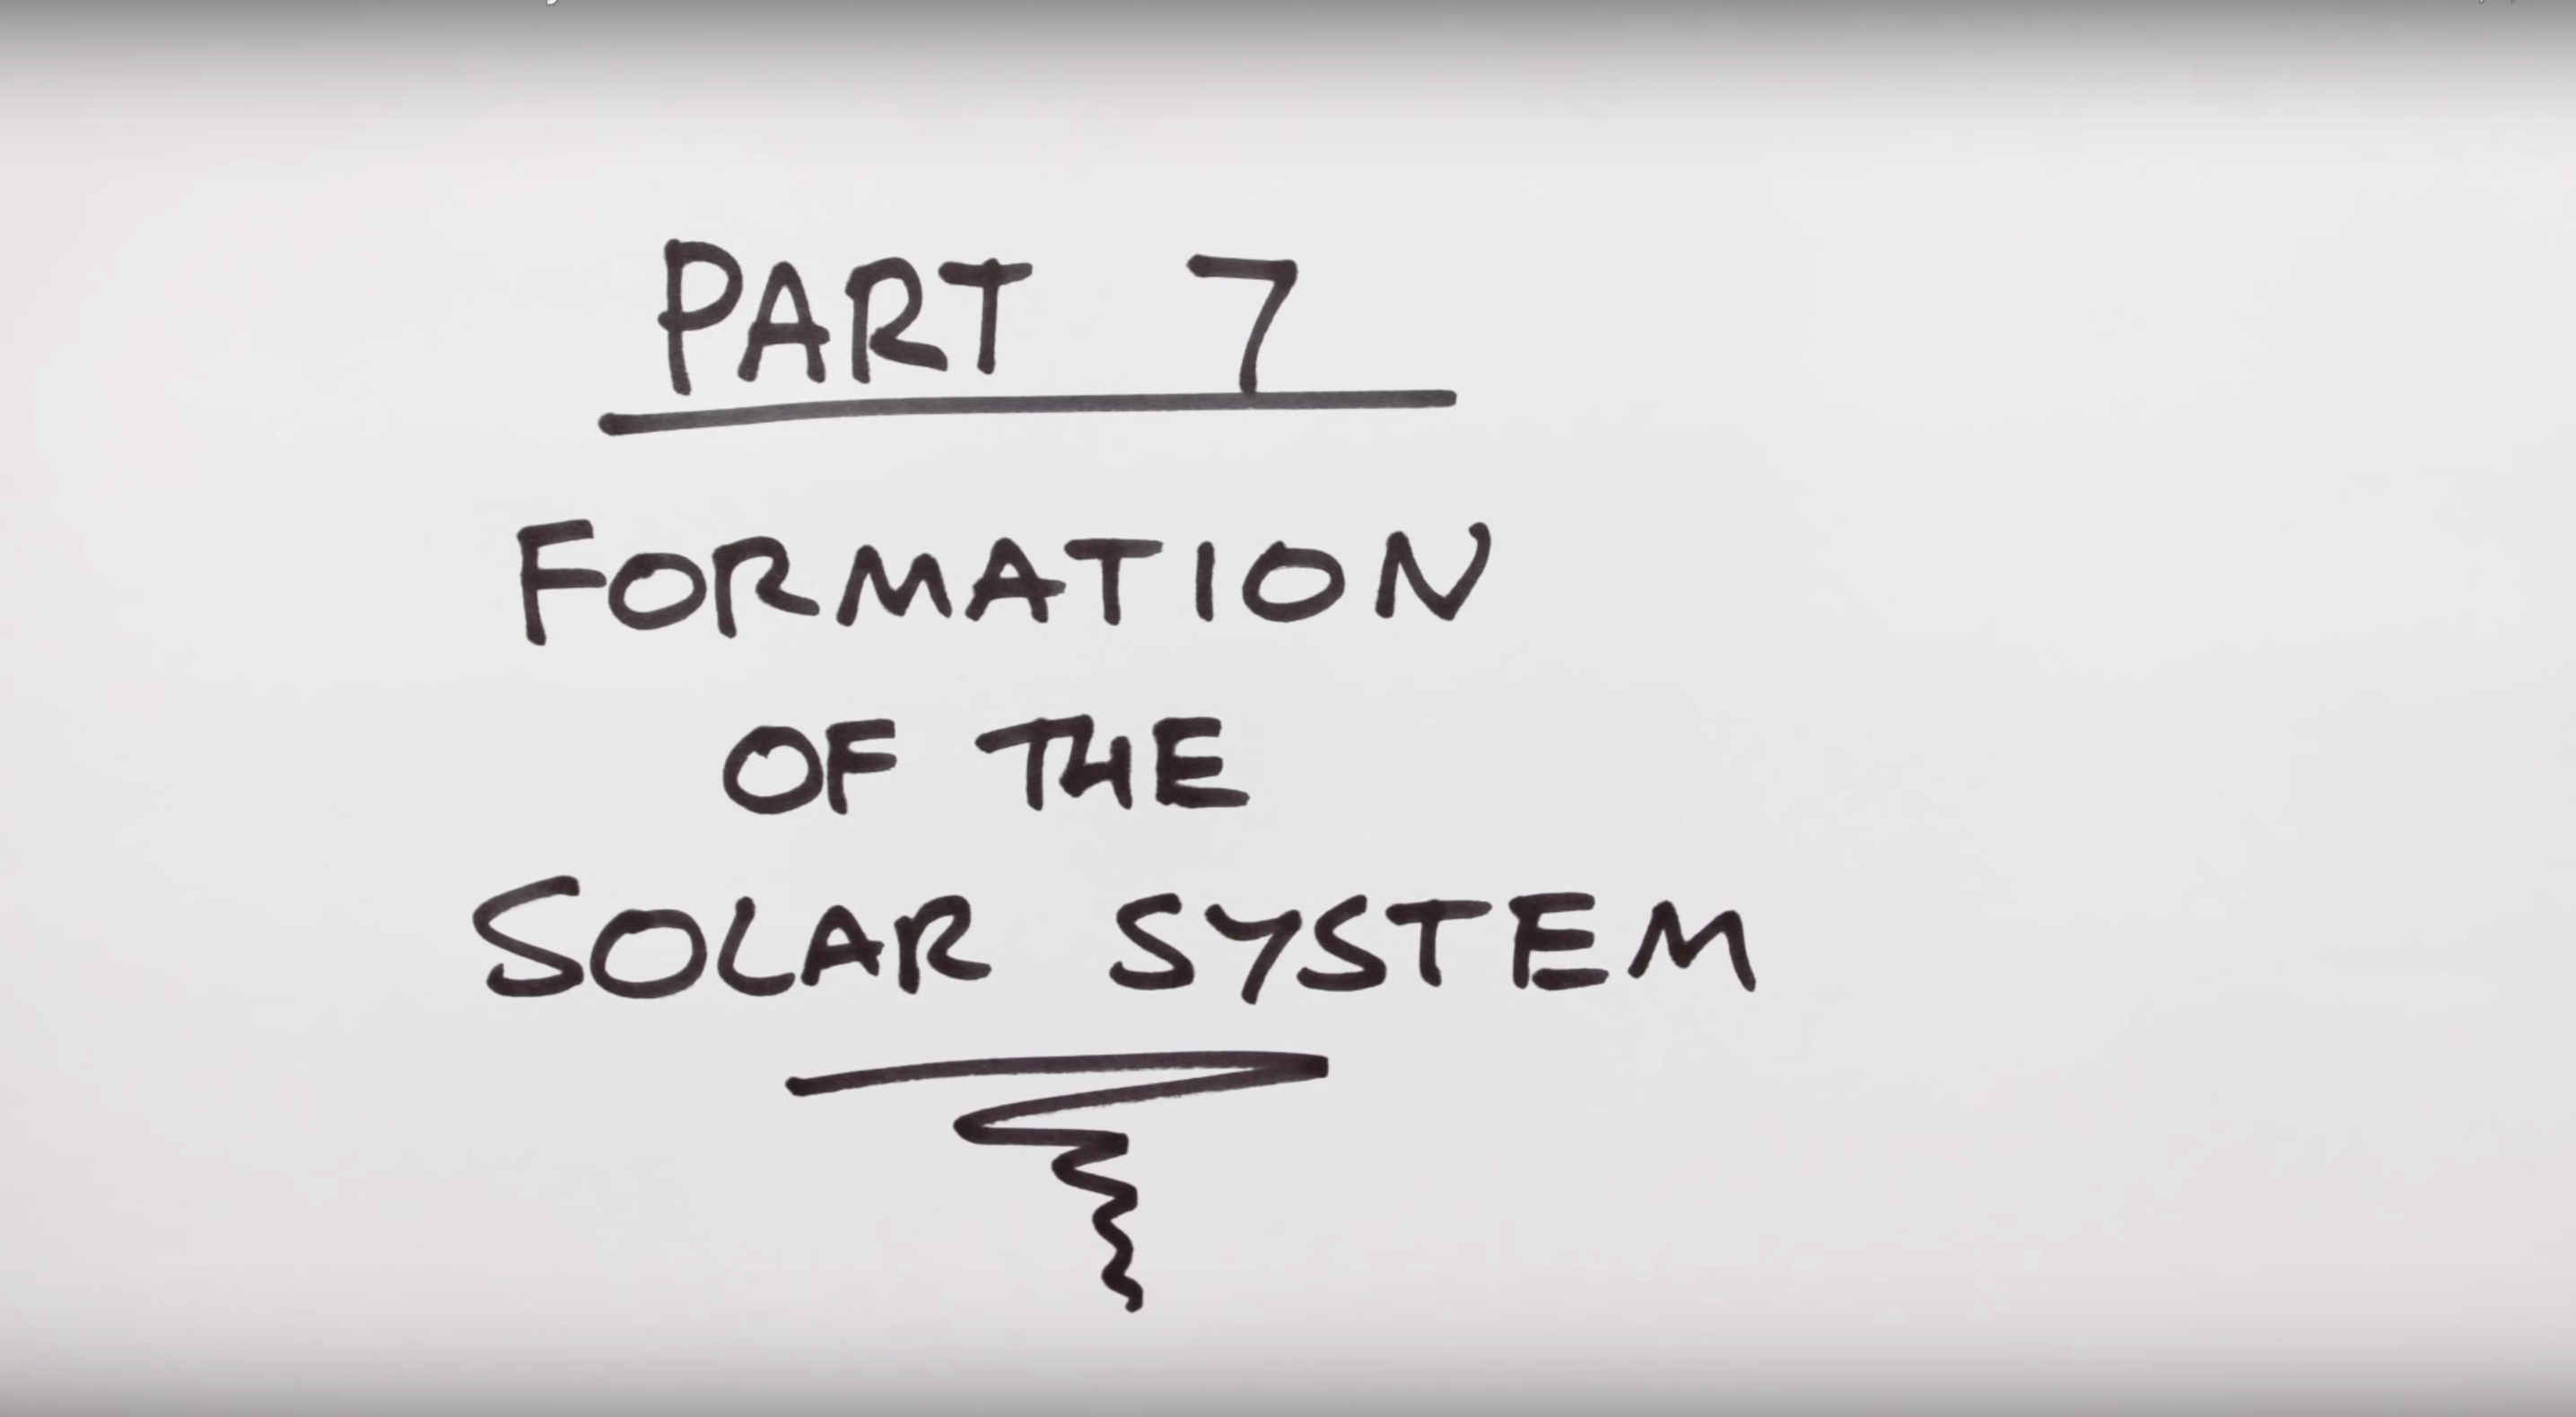 PART 7
FORMATION
OF THE
SOLAR SYSTEM